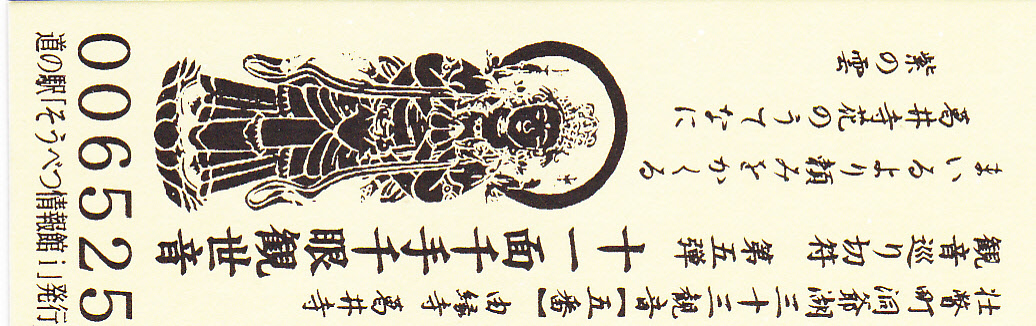 壮瞥町 洞爺湖 三十三観音【五番】 由縁寺 葛井寺
観音巡り切符 第五弾
十一面千手千眼観世音
まいるより頼みをかくる
葛井寺花のうてなに
紫の雲
006525
道の駅「そうべつ情報館i」発行